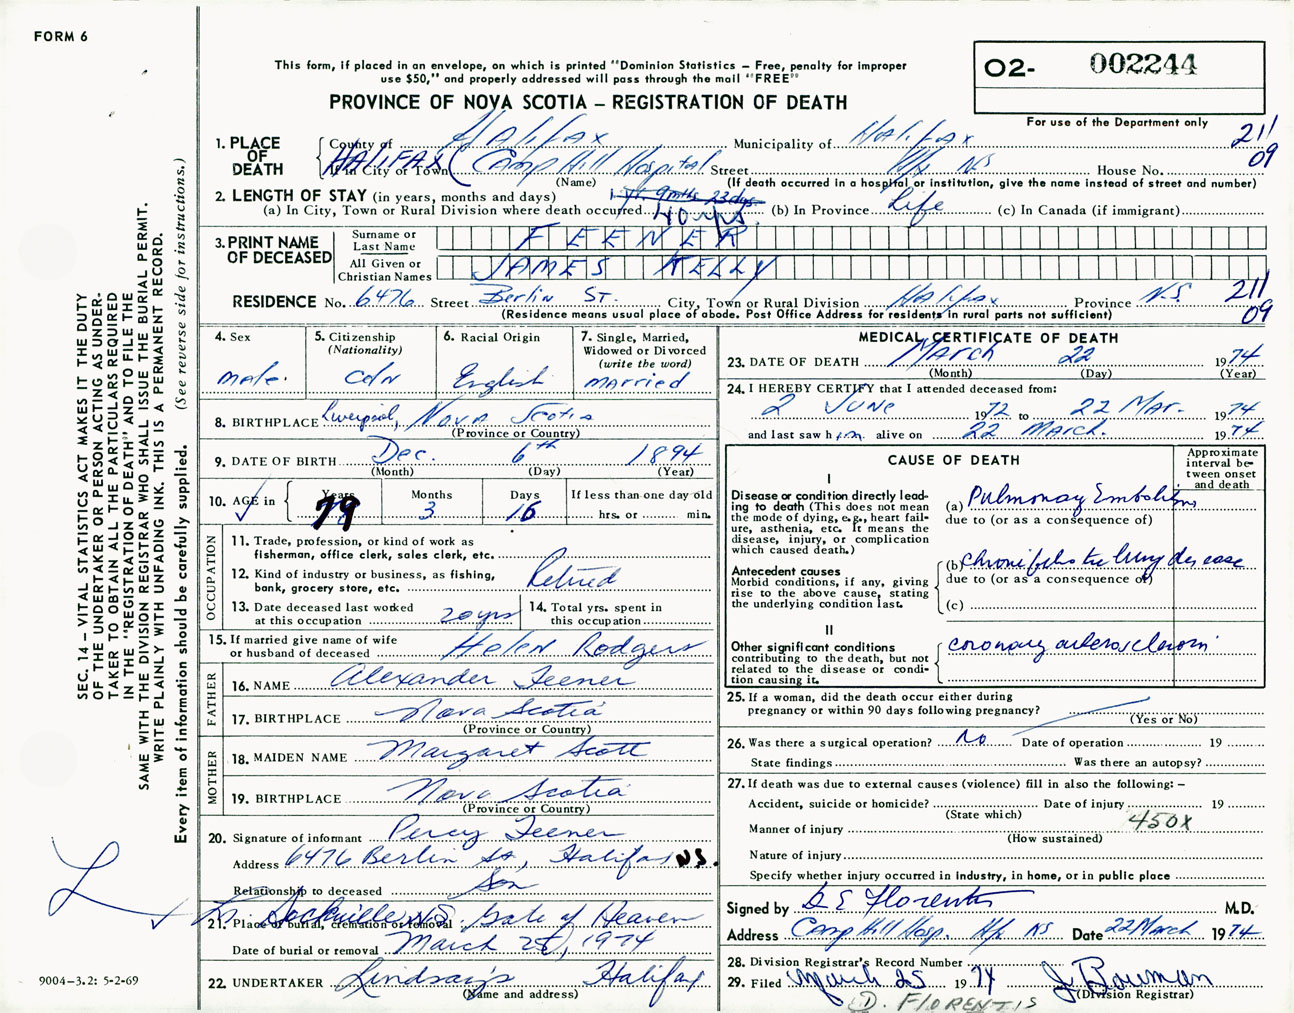 FORM 6
This form, if placed in an envelope, on which is printed "Dominion Statistics – Free, penalty for improper
use $50," and properly addressed will pass through the mail "FREE"
PROVINCE OF NOVA SCOTIA – REGISTRATION OF DEATH
O2- 002244
For use of the Department only
1. PLACE OF DEATH
County of Halifax Municipality of Halifax 211
HALIFAX If in City or Town (Camp Hill Hospital Street Hfx NS House No. 09
(Name) (If death occurred in a hospital or institution, give the name instead of street and number)
2. LENGTH OF STAY (in years, months and days) 9 mths 23 days
(a) In City, Town or Rural Division where death occurred 40 yrs. (b) In Province Life (c) In Canada (if immigrant)
3. PRINT NAME OF DECEASED
Surname or Last Name FEENER
All Given or Christian Names JAMES KELLY
RESIDENCE No. 6476 Street Berlin ST. City, Town or Rural Division Halifax Province N.S. 211
(Residence means usual place of abode. Post Office Address for residents in rural parts not sufficient) 09
4. Sex male.
5. Citizenship (Nationality) CDN
6. Racial Origin English
7. Single, Married, Widowed or Divorced (write the word) married
8. BIRTHPLACE Liverpool, Nova Scotia
(Province or Country)
9. DATE OF BIRTH Dec. 6th 1894
(Month) (Day) (Year)
10. AGE in Years 79 Months 3 Days 16 If less than one day old
hrs. or min.
OCCUPATION
11. Trade, profession, or kind of work as
fisherman, office clerk, sales clerk, etc.
12. Kind of industry or business, as fishing,
bank, grocery store, etc. Retired
13. Date deceased last worked
at this occupation 20 yrs
14. Total yrs. spent in
this occupation
15. If married give name of wife
or husband of deceased Helen Rodgers
FATHER
16. NAME Alexander Feener
17. BIRTHPLACE Nova Scotia
(Province or Country)
MOTHER
18. MAIDEN NAME Margaret Scott
19. BIRTHPLACE Nova Scotia
(Province or Country)
20. Signature of informant Percy Feener
Address 6476 Berlin St., Halifax NS.
Relationship to deceased Son
Sackville N.S. Gate of Heaven
21. Place of burial, cremation or removal
Date of burial or removal March 25, 1974
22. UNDERTAKER Lindsay's Halifax
(Name and address)
MEDICAL CERTIFICATE OF DEATH
23. DATE OF DEATH March 22 1974
(Month) (Day) (Year)
24. I HEREBY CERTIFY that I attended deceased from:
2 June 1972 to 22 Mar. 1974
and last saw him alive on 22 March. 1974
CAUSE OF DEATH
Approximate interval between onset and death
I
Disease or condition directly leading to death (This does not mean the mode of dying, e.g., heart failure, asthenia, etc. It means the disease, injury, or complication which caused death.)
(a) Pulmonary Embolism
due to (or as a consequence of)
Antecedent causes
Morbid conditions, if any, giving rise to the above cause, stating the underlying condition last.
(b) chronic lung disease
due to (or as a consequence of)
(c)
II
Other significant conditions
contributing to the death, but not related to the disease or condition causing it.
coronary arteriosclerosis
25. If a woman, did the death occur either during
pregnancy or within 90 days following pregnancy?
(Yes or No)
26. Was there a surgical operation? No Date of operation 19
State findings Was there an autopsy?
27. If death was due to external causes (violence) fill in also the following: –
Accident, suicide or homicide? Date of injury 19
(State which)
Manner of injury 450X
(How sustained)
Nature of injury
Specify whether injury occurred in industry, in home, or in public place
Signed by D E Florentis M.D.
Address Camp Hill Hosp. Hfx NS Date 22 March 1974
28. Division Registrar's Record Number
29. Filed March 25 1974 J. Bowman
(Division Registrar)
(D. FLORENTIS
SEC. 14 – VITAL STATISTICS ACT MAKES IT THE DUTY
OF THE UNDERTAKER OR PERSON ACTING AS UNDER-
TAKER TO OBTAIN ALL THE PARTICULARS REQUIRED
IN THE "REGISTRATION OF DEATH" AND TO FILE THE
SAME WITH THE DIVISION REGISTRAR WHO SHALL ISSUE THE BURIAL PERMIT.
WRITE PLAINLY WITH UNFADING INK. THIS IS A PERMANENT RECORD.
Every item of information should be carefully supplied. (See reverse side for instructions.)
9004–3.2: 5-2-69